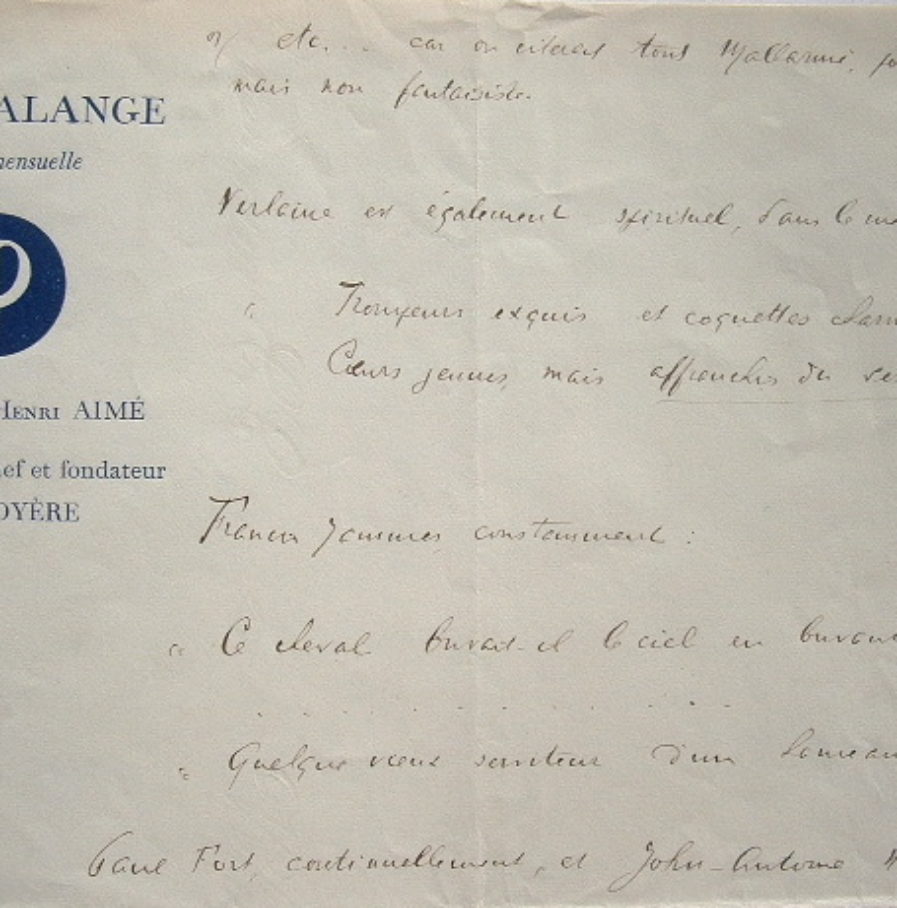 etc... car on citerait tout Mallarmé,
mais non fantaisiste.
ALANGE
mensuelle
Verlaine est également spirituel, dans le
P
" Trompeurs exquis et coquettes
Cœurs jeunes, mais affranchis du
HENRI AIMÉ
ef et fondateur
OYÈRE
Francis Jammes constamment :
" Ce cheval buvait-il le ciel en buvant
. . . . . . . . . . . .
" Quelque vieux serviteur d'un
Paul Fort, continuellement, et John-Antoine